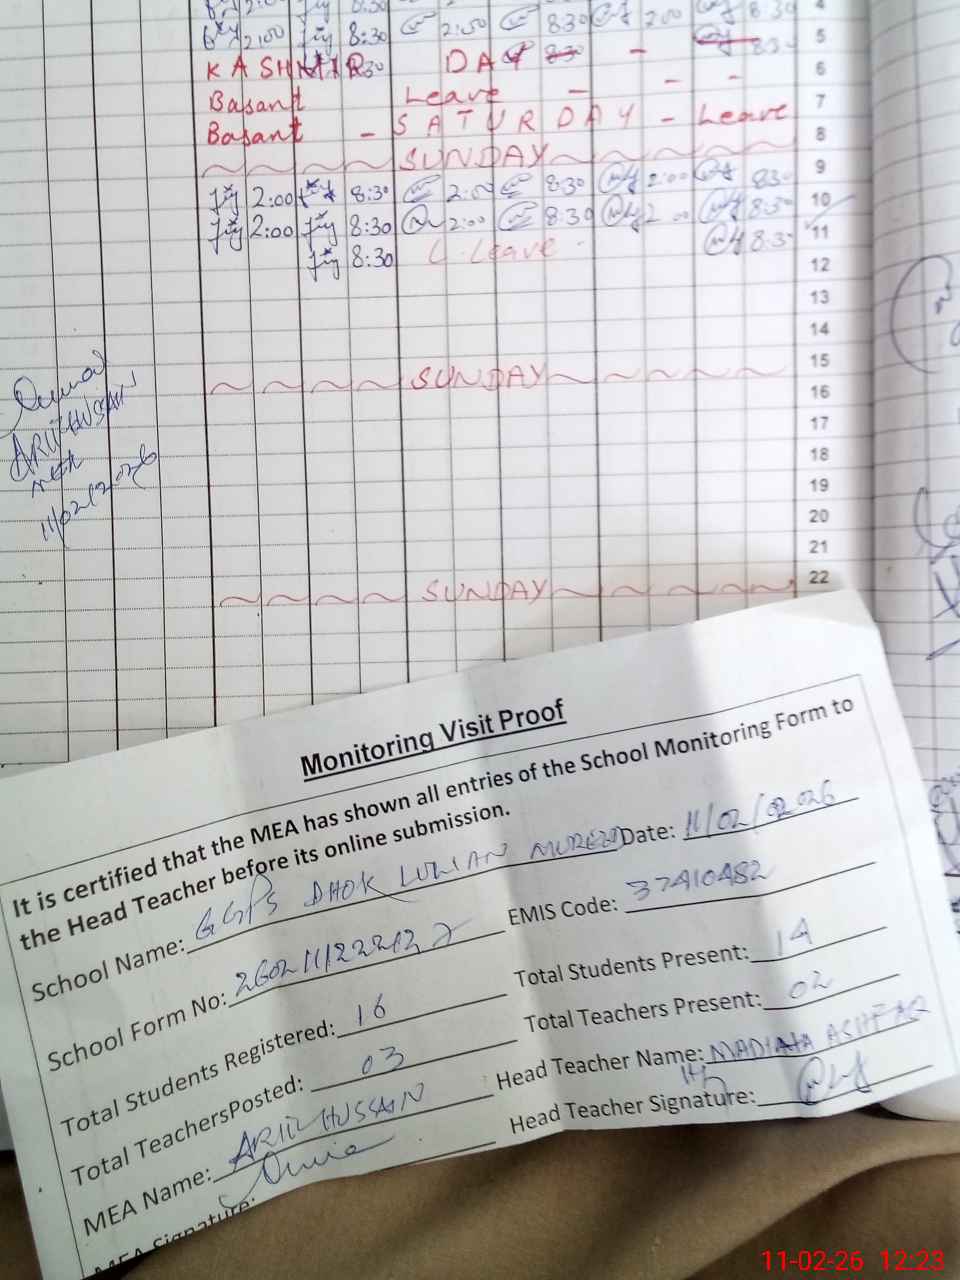 8:30 2:00 8:30 4
2:00 8:30 2:50 8:30 2:00 8:30 5
KASHMIR DAY 8:30 - 6
Basant Leave - - - 7
Basant - SATURDAY - Leave 8
SUNDAY 9
2:00 8:30 2:00 8:30 2:00 830 10
2:00 8:30 2:00 8:30 2:00 8:30 11
8:30 Leave 8:3 12
13
14
15
SUNDAY 16
17
18
19
20
21
22
SUNDAY
ARIF HUSSAIN
MEA
11/02/2026
Monitoring Visit Proof
It is certified that the MEA has shown all entries of the School Monitoring Form to
the Head Teacher before its online submission.
School Name: GGPS DHOK Date: 11/02/2026
School Form No: EMIS Code: 37410482
Total Students Registered: 16 Total Students Present: 14
Total TeachersPosted: 03 Total Teachers Present: 02
MEA Name: ARIF HUSSAIN Head Teacher Name: ASHFAQ
MEA Signature: Head Teacher Signature:
11-02-26 12:23